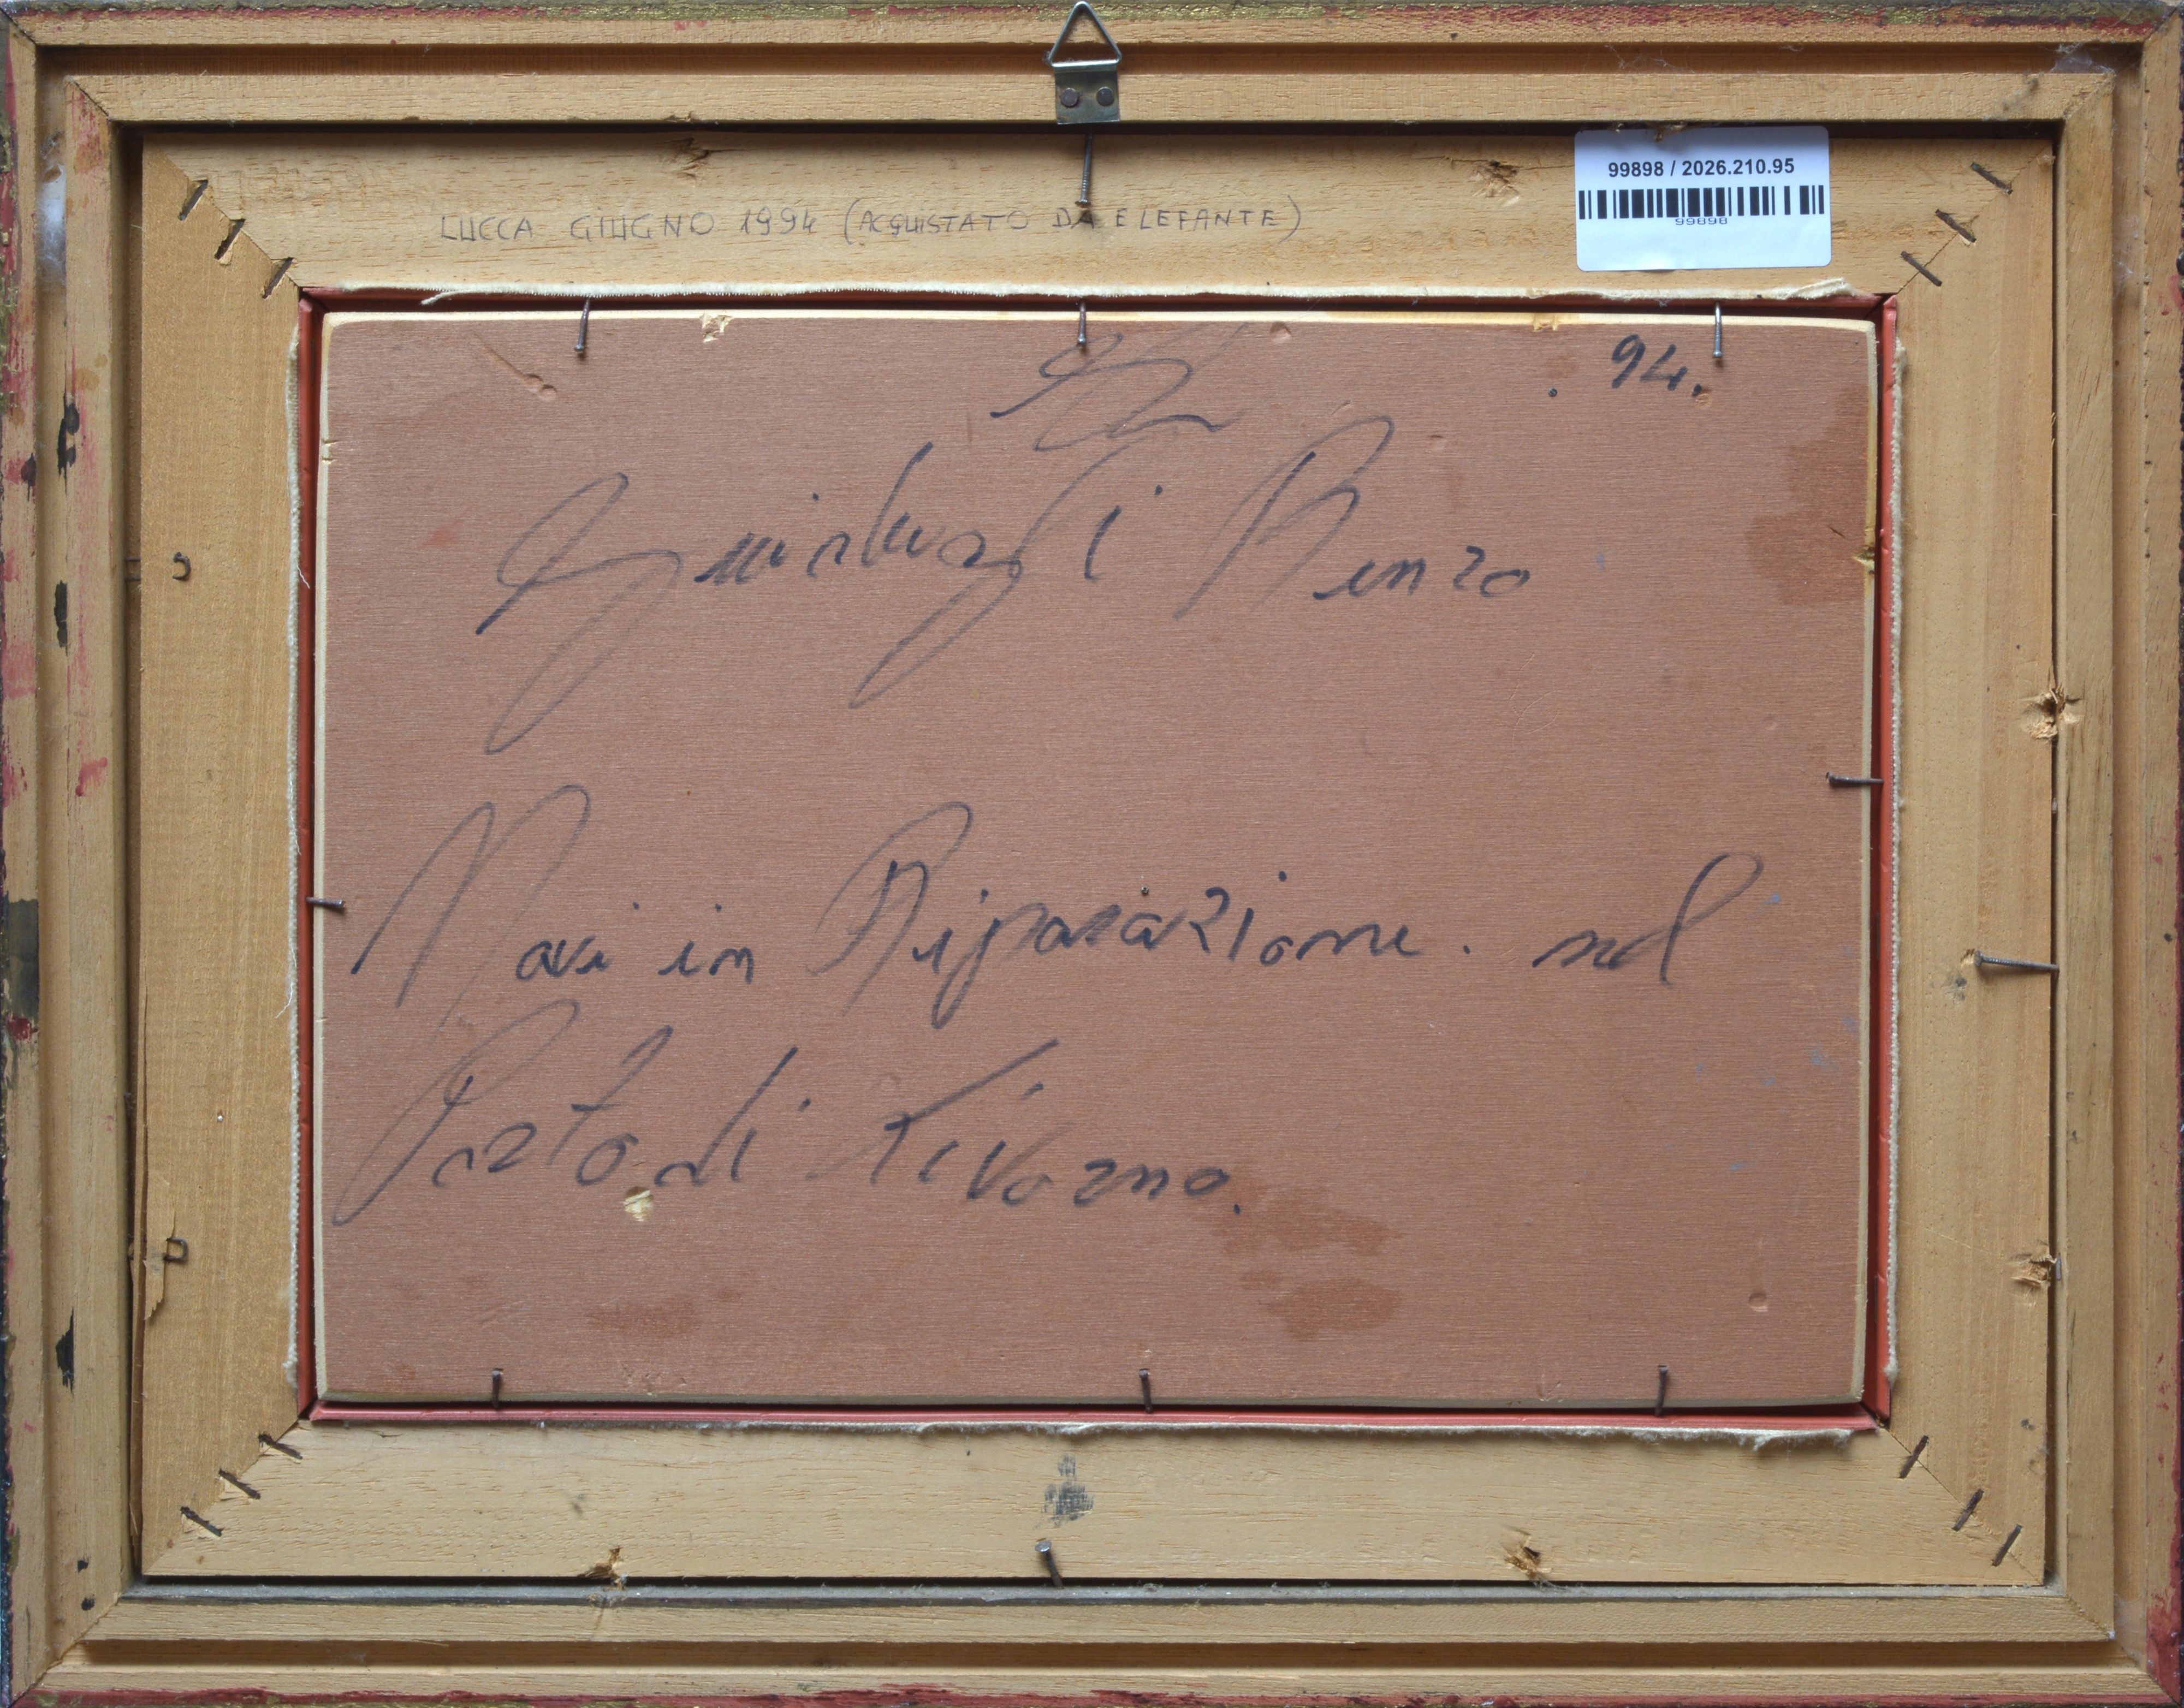 99898 / 2026.210.95
99898
LUCCA GIUGNO 1994 (ACQUISTATO DA ELEFANTE)
. 94.
Renzo
Navi in Riparazione. nel
Porto di Livorno.